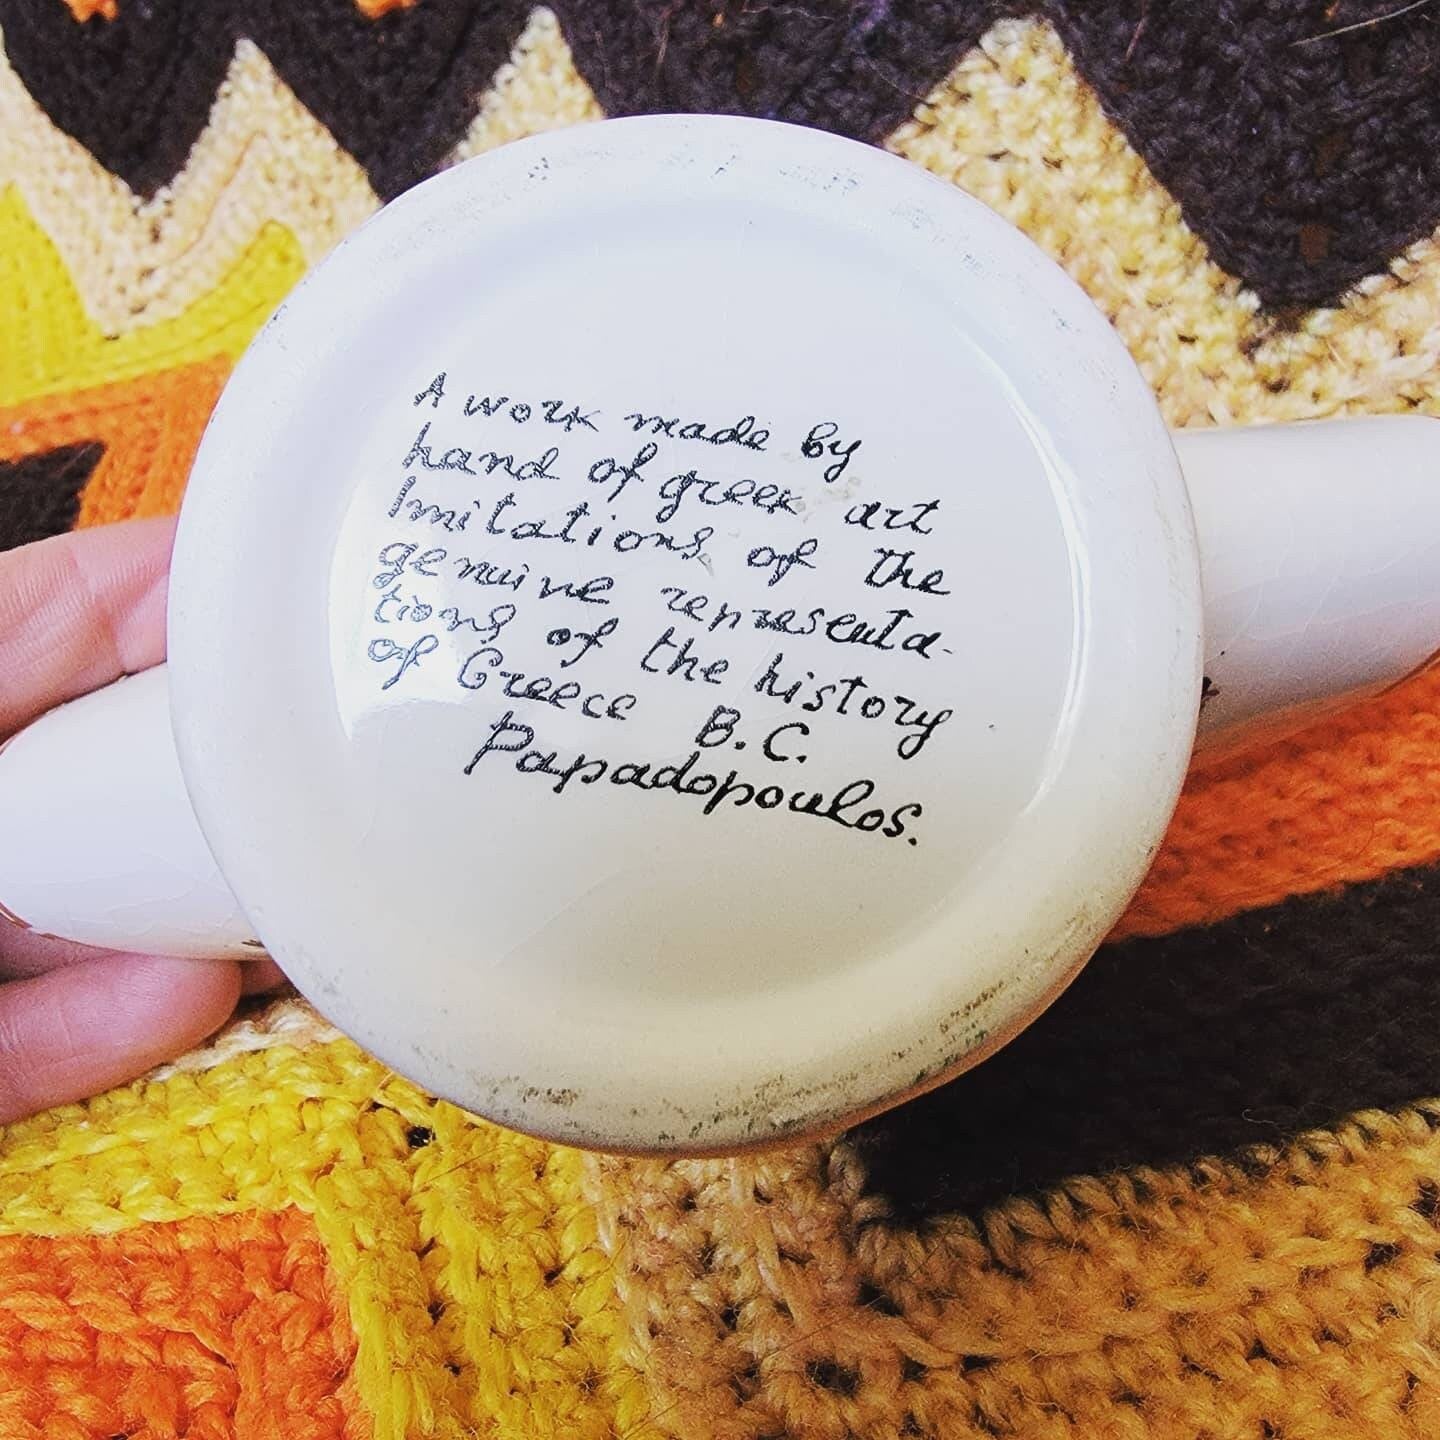 A work made by
hand of greek art
Imitations of the
genuine representa-
tions of the history
of Greece B.C.
Papadopoulos.